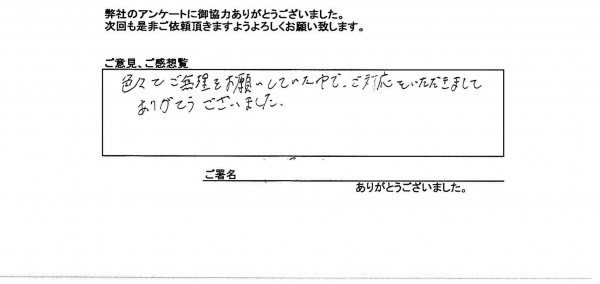 弊社のアンケートに御協力ありがとうございました。
次回も是非ご依頼頂きますようよろしくお願い致します。
ご意見、ご感想覧
色々とご無理をお願いしていた中で、ご対応をいただきまして
ありがとうございました。
ご署名
ありがとうございました。